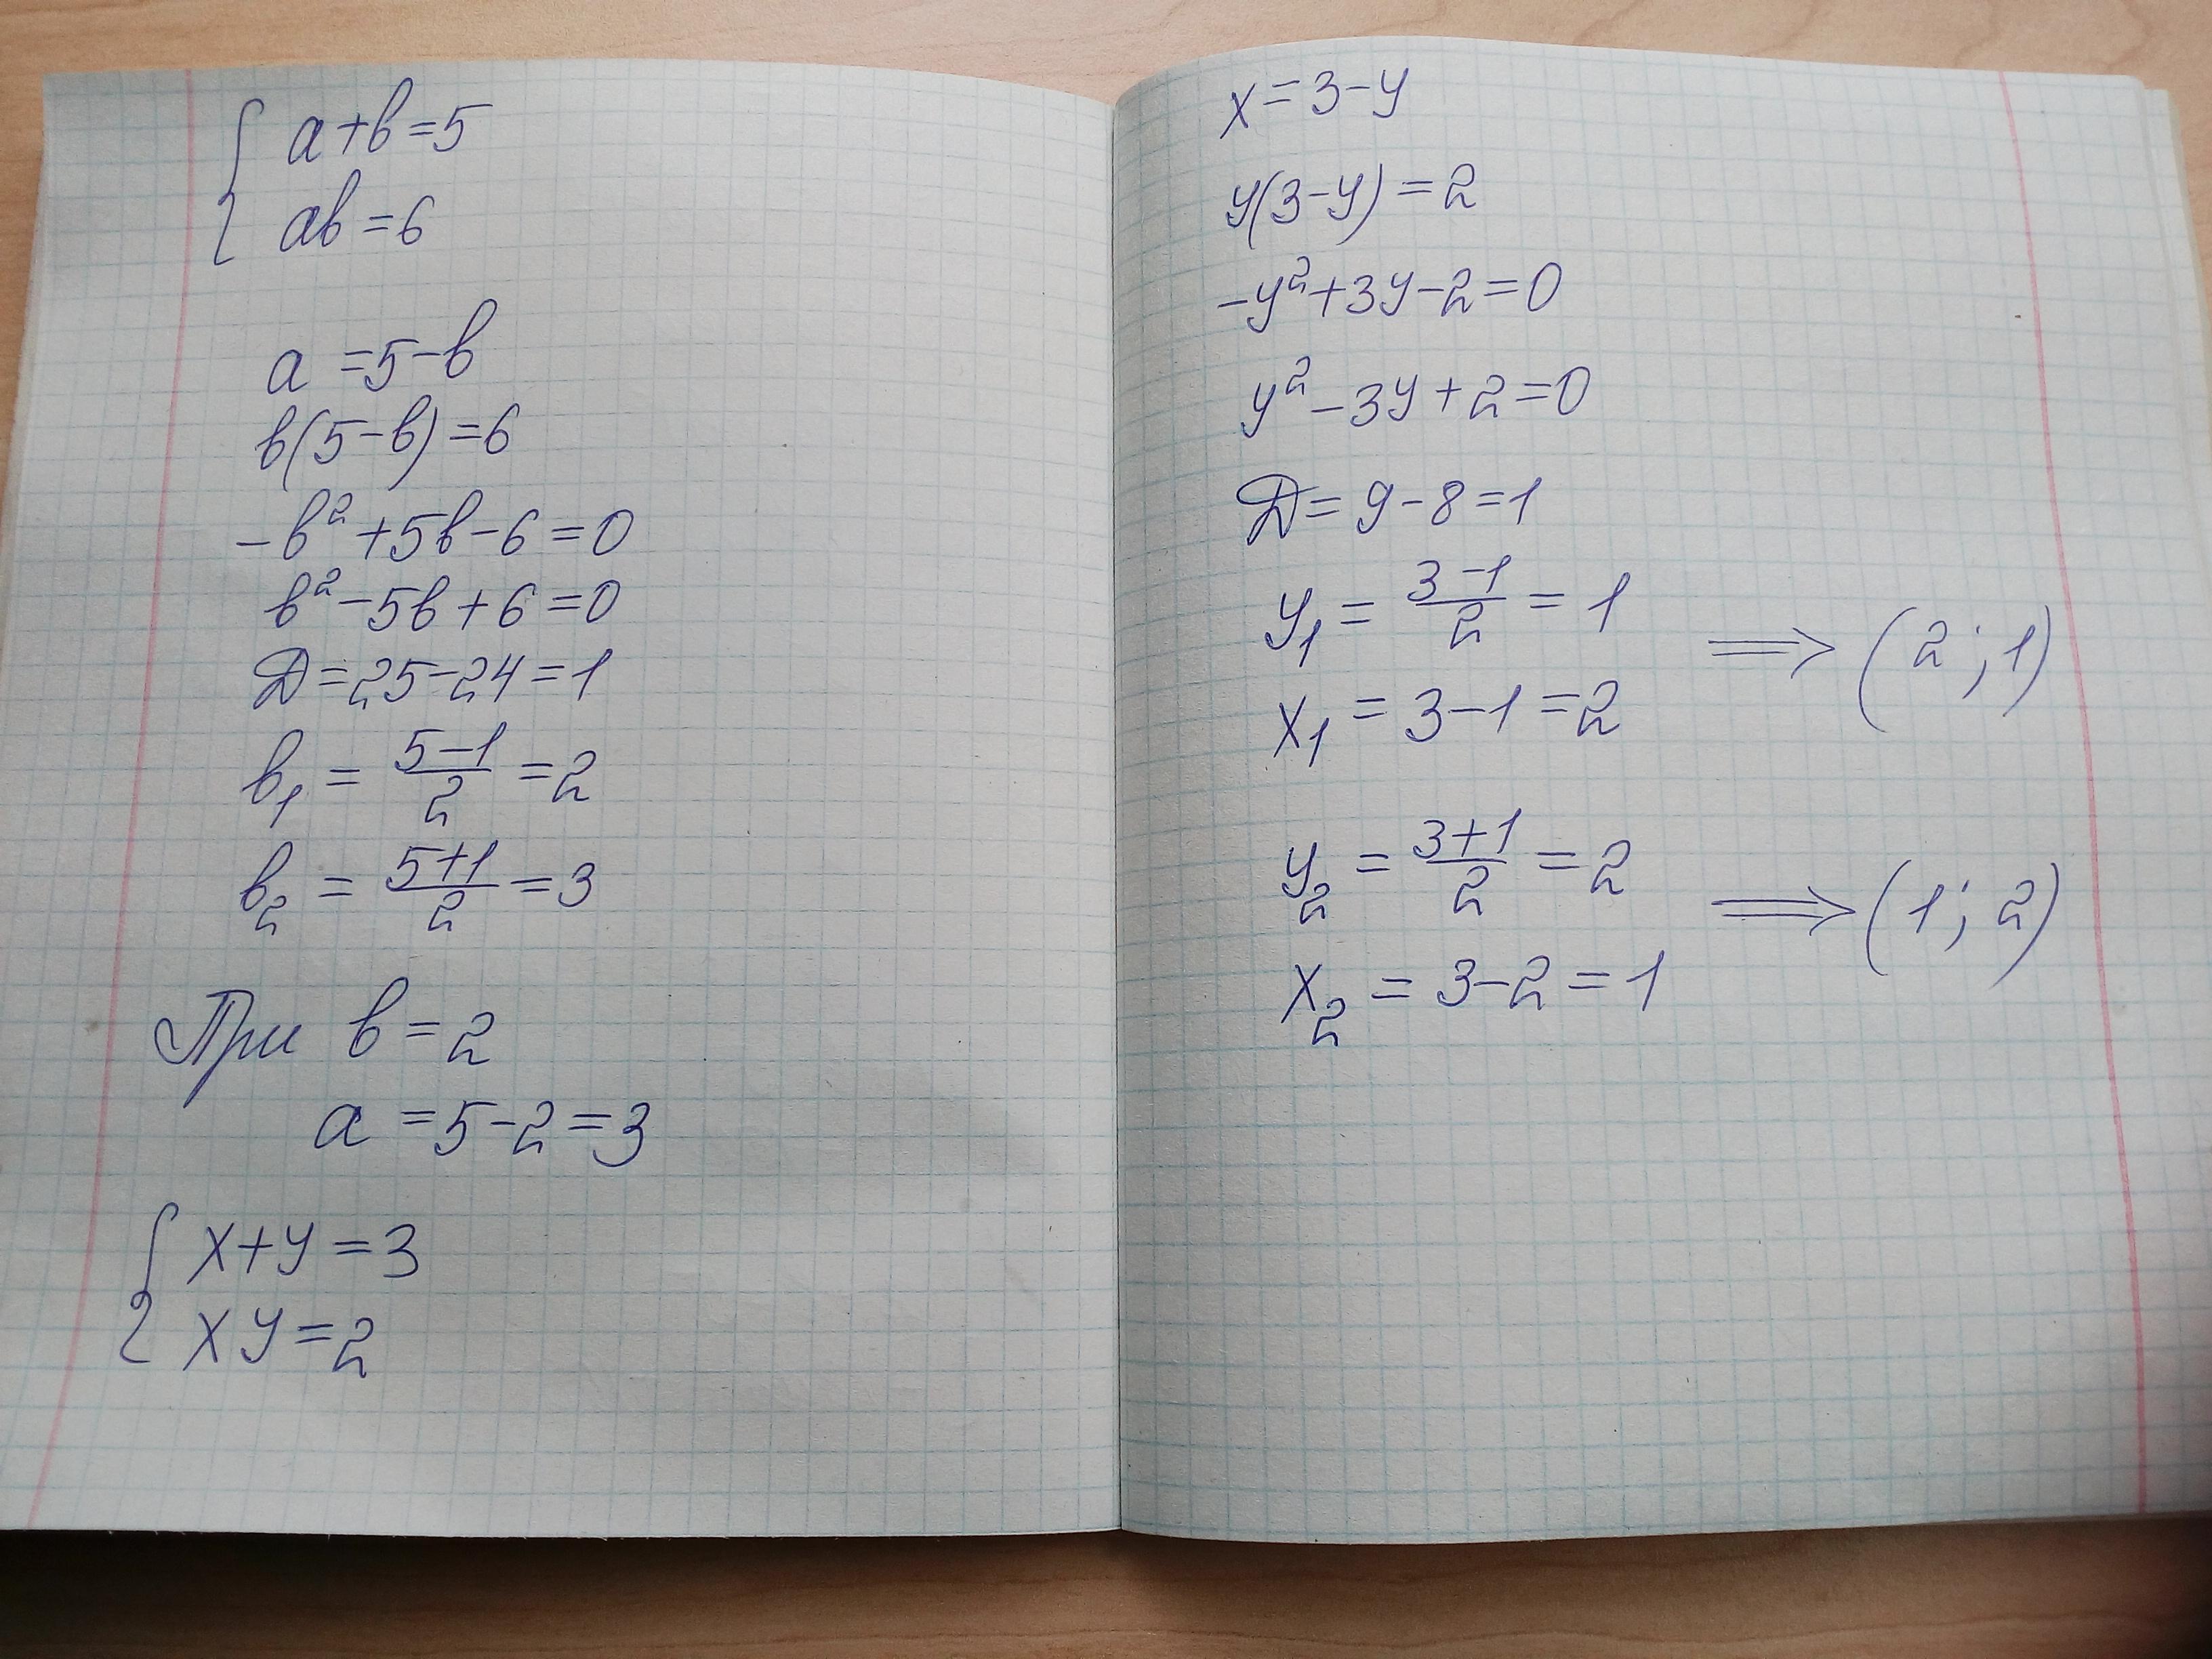 a+b=5
ab=6
a=5-b
b(5-b)=6
-b²+5b-6=0
b²-5b+6=0
Д=25-24=1
b₁=(5-1)/2=2
b₂=(5+1)/2=3
При b=2
a=5-2=3
x+y=3
xy=2
x=3-y
y(3-y)=2
-y²+3y-2=0
y²-3y+2=0
Д=9-8=1
y₁=(3-1)/2=1
⟹(2;1)
x₁=3-1=2
y₂=(3+1)/2=2
⟹(1;2)
x₂=3-2=1